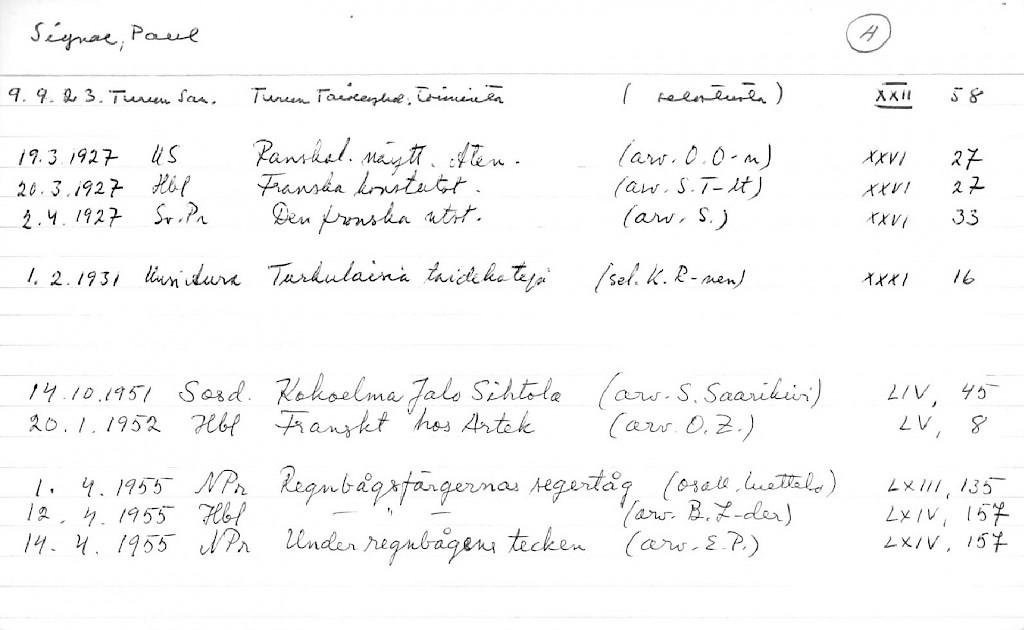 Signac, Paul A
9.9.23. Turun San. Turun Taideyhd. toiminta (selostusta) XXII 58
19.3.1927 US Ranskal. näytt. Aten. (arv. O.O-n) XXVI 27
20.3.1927 Hbl Franska konstutst. (arv. S.T-lt) XXVI 27
2.4.1927 Sv.Pr Den franska utst. (arv. S.) XXVI 33
1.2.1931 Uusi Aura Turkulaisia taidekoteja (sel. K. R-nen) XXXI 16
14.10.1951 Sosd. Kokoelma Jalo Sihtola (arv. S. Saarikivi) LIV, 45
20.1.1952 Hbl Franskt hos Artek (arv. O.Z.) LV, 8
1. 4. 1955 NPr Regnbågsfärgernas segertåg (osall. luettelo) LXIII, 135
12. 4. 1955 Hbl — " — (arv. B. L-der) LXIV, 157
14. 4. 1955 NPr Under regnbågens tecken (arv. E.P.) LXIV, 157